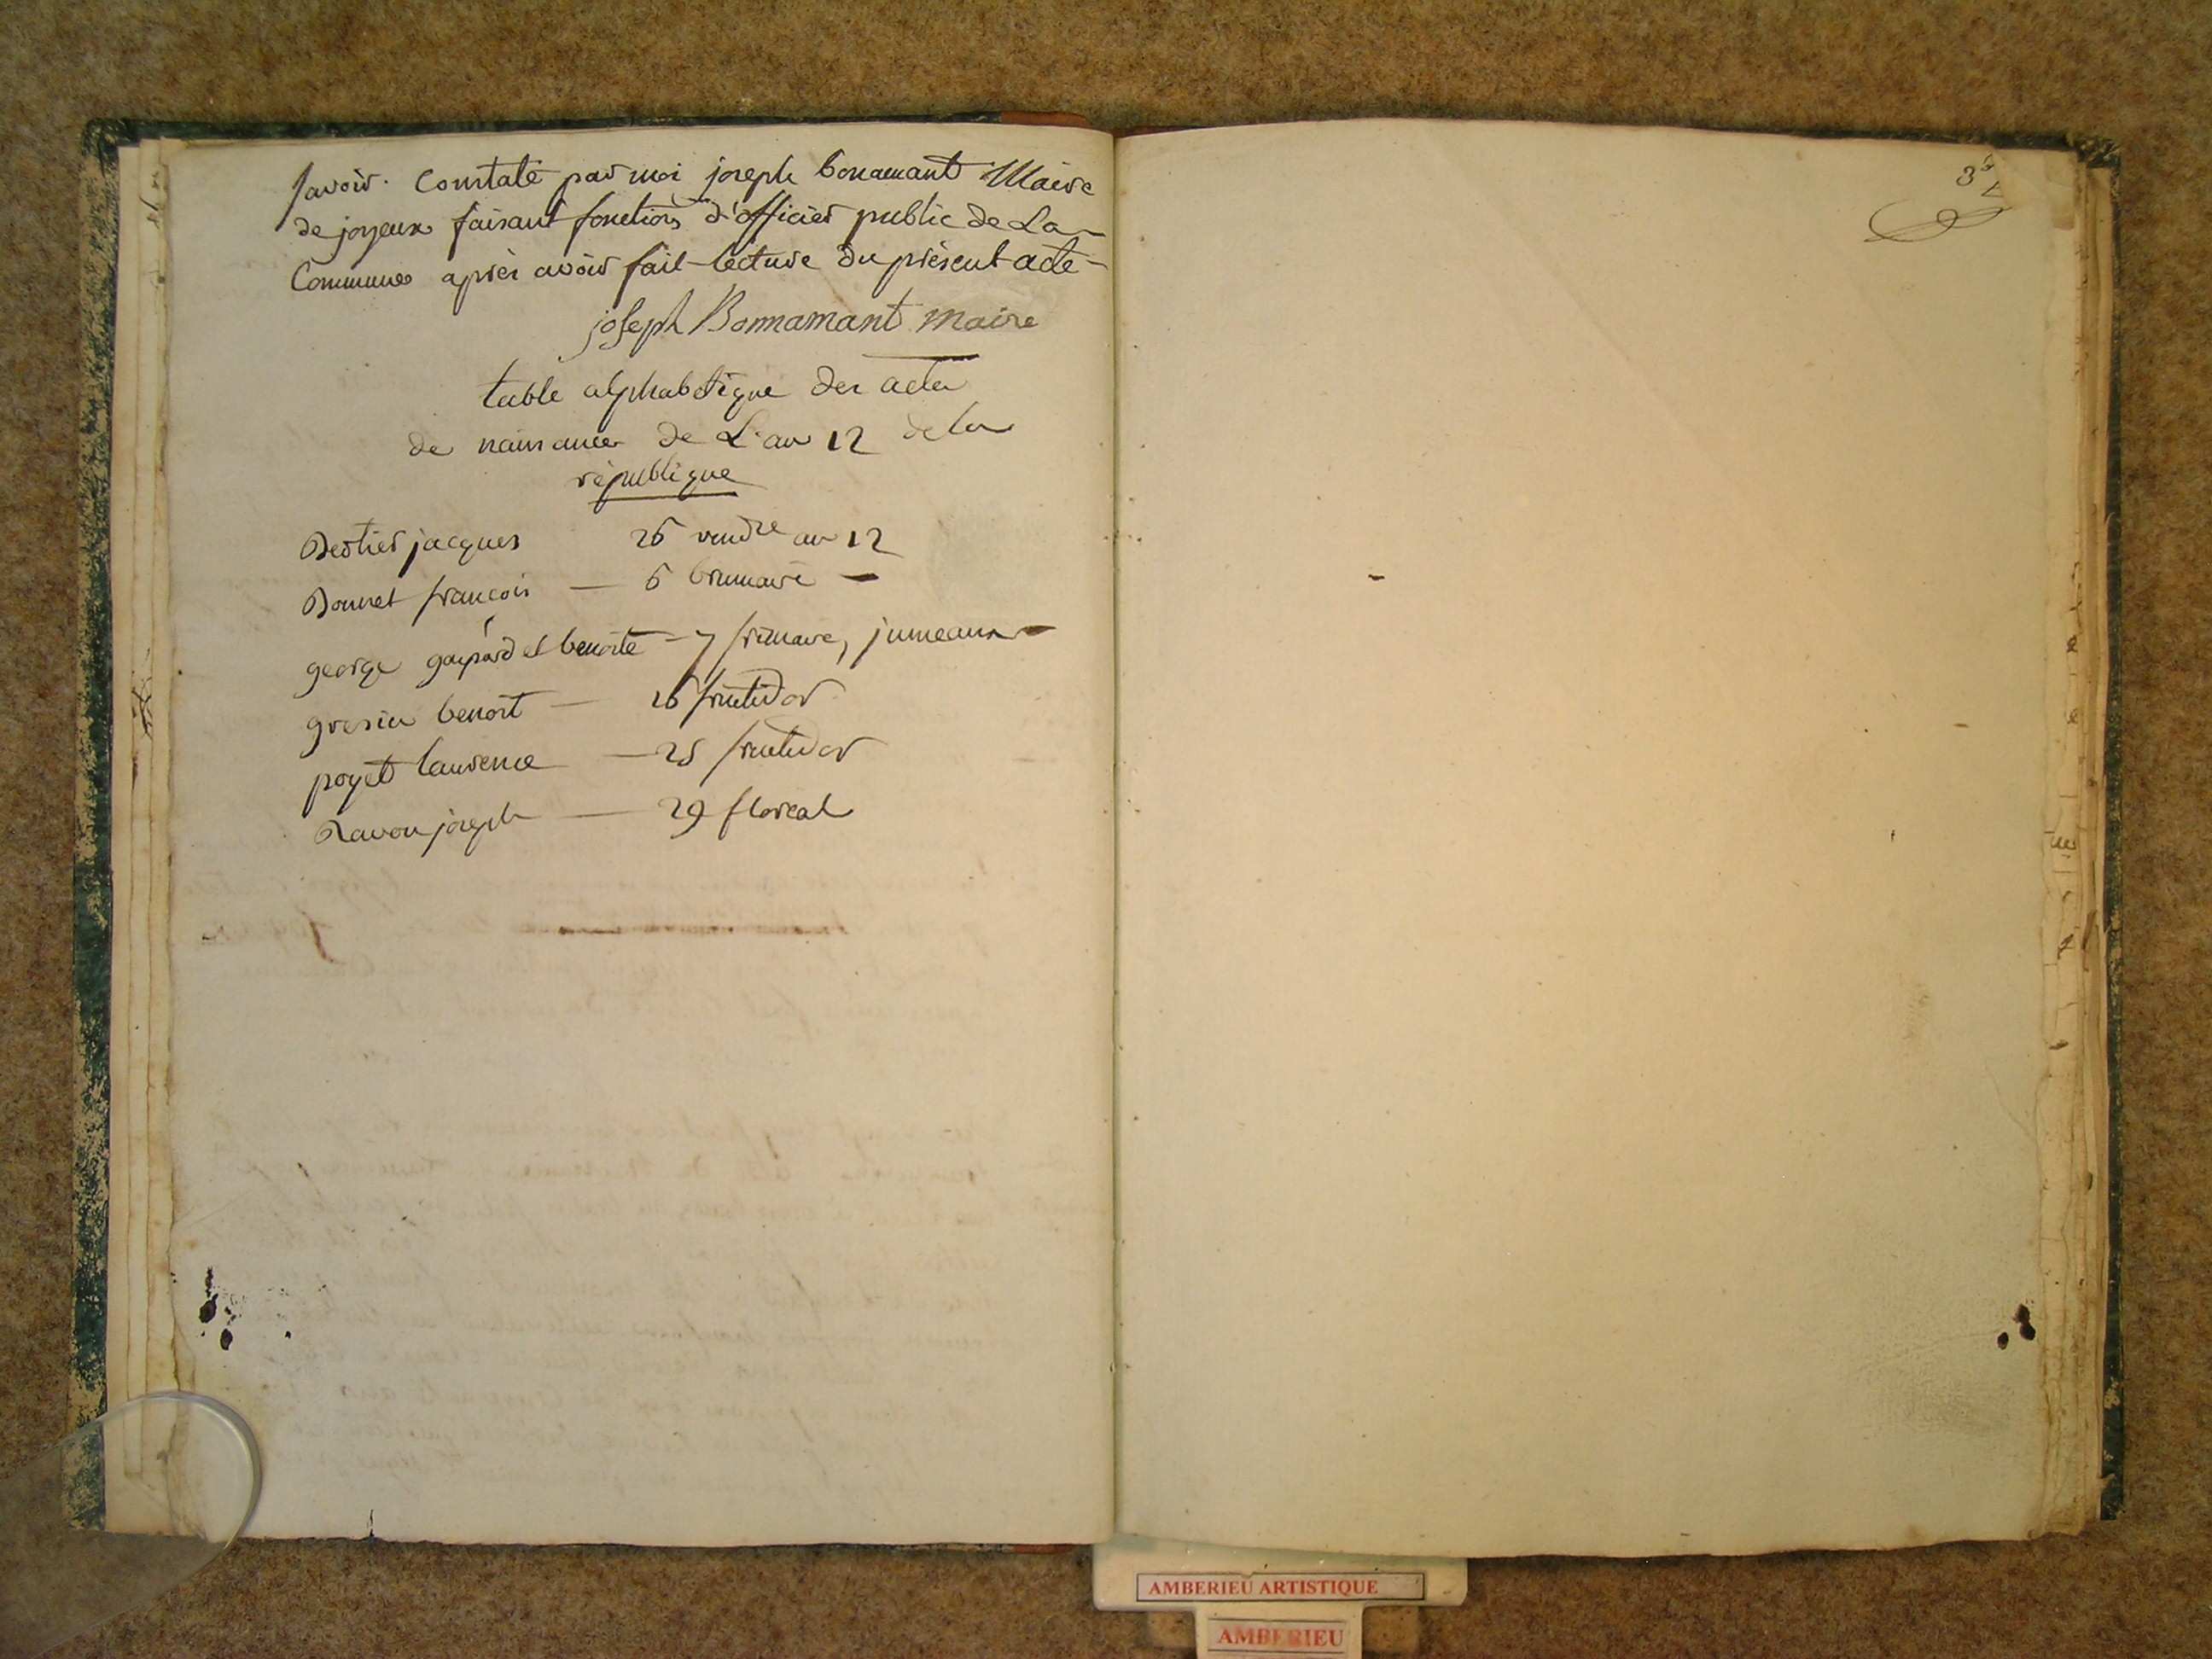 savoir. Constaté par moi joseph bonamant Maire
de joyeux faisant fonctions d'officier public de La
Commune après avoir fait lecture du présent acte
joseph Bonnamant maire
table alphabetique des actes
de naissance de L'an 12 de la
république
jacques 26 vendre an 12
Donnet françois — 6 brumaire —
george gaspard et benoite — 7 frimaire, jumeaux
gresin benoit — 26 fructidor
poyet laurence — 25 fructidor
Ravon joseph — 29 floréal
AMBERIEU ARTISTIQUE
AMBERIEU